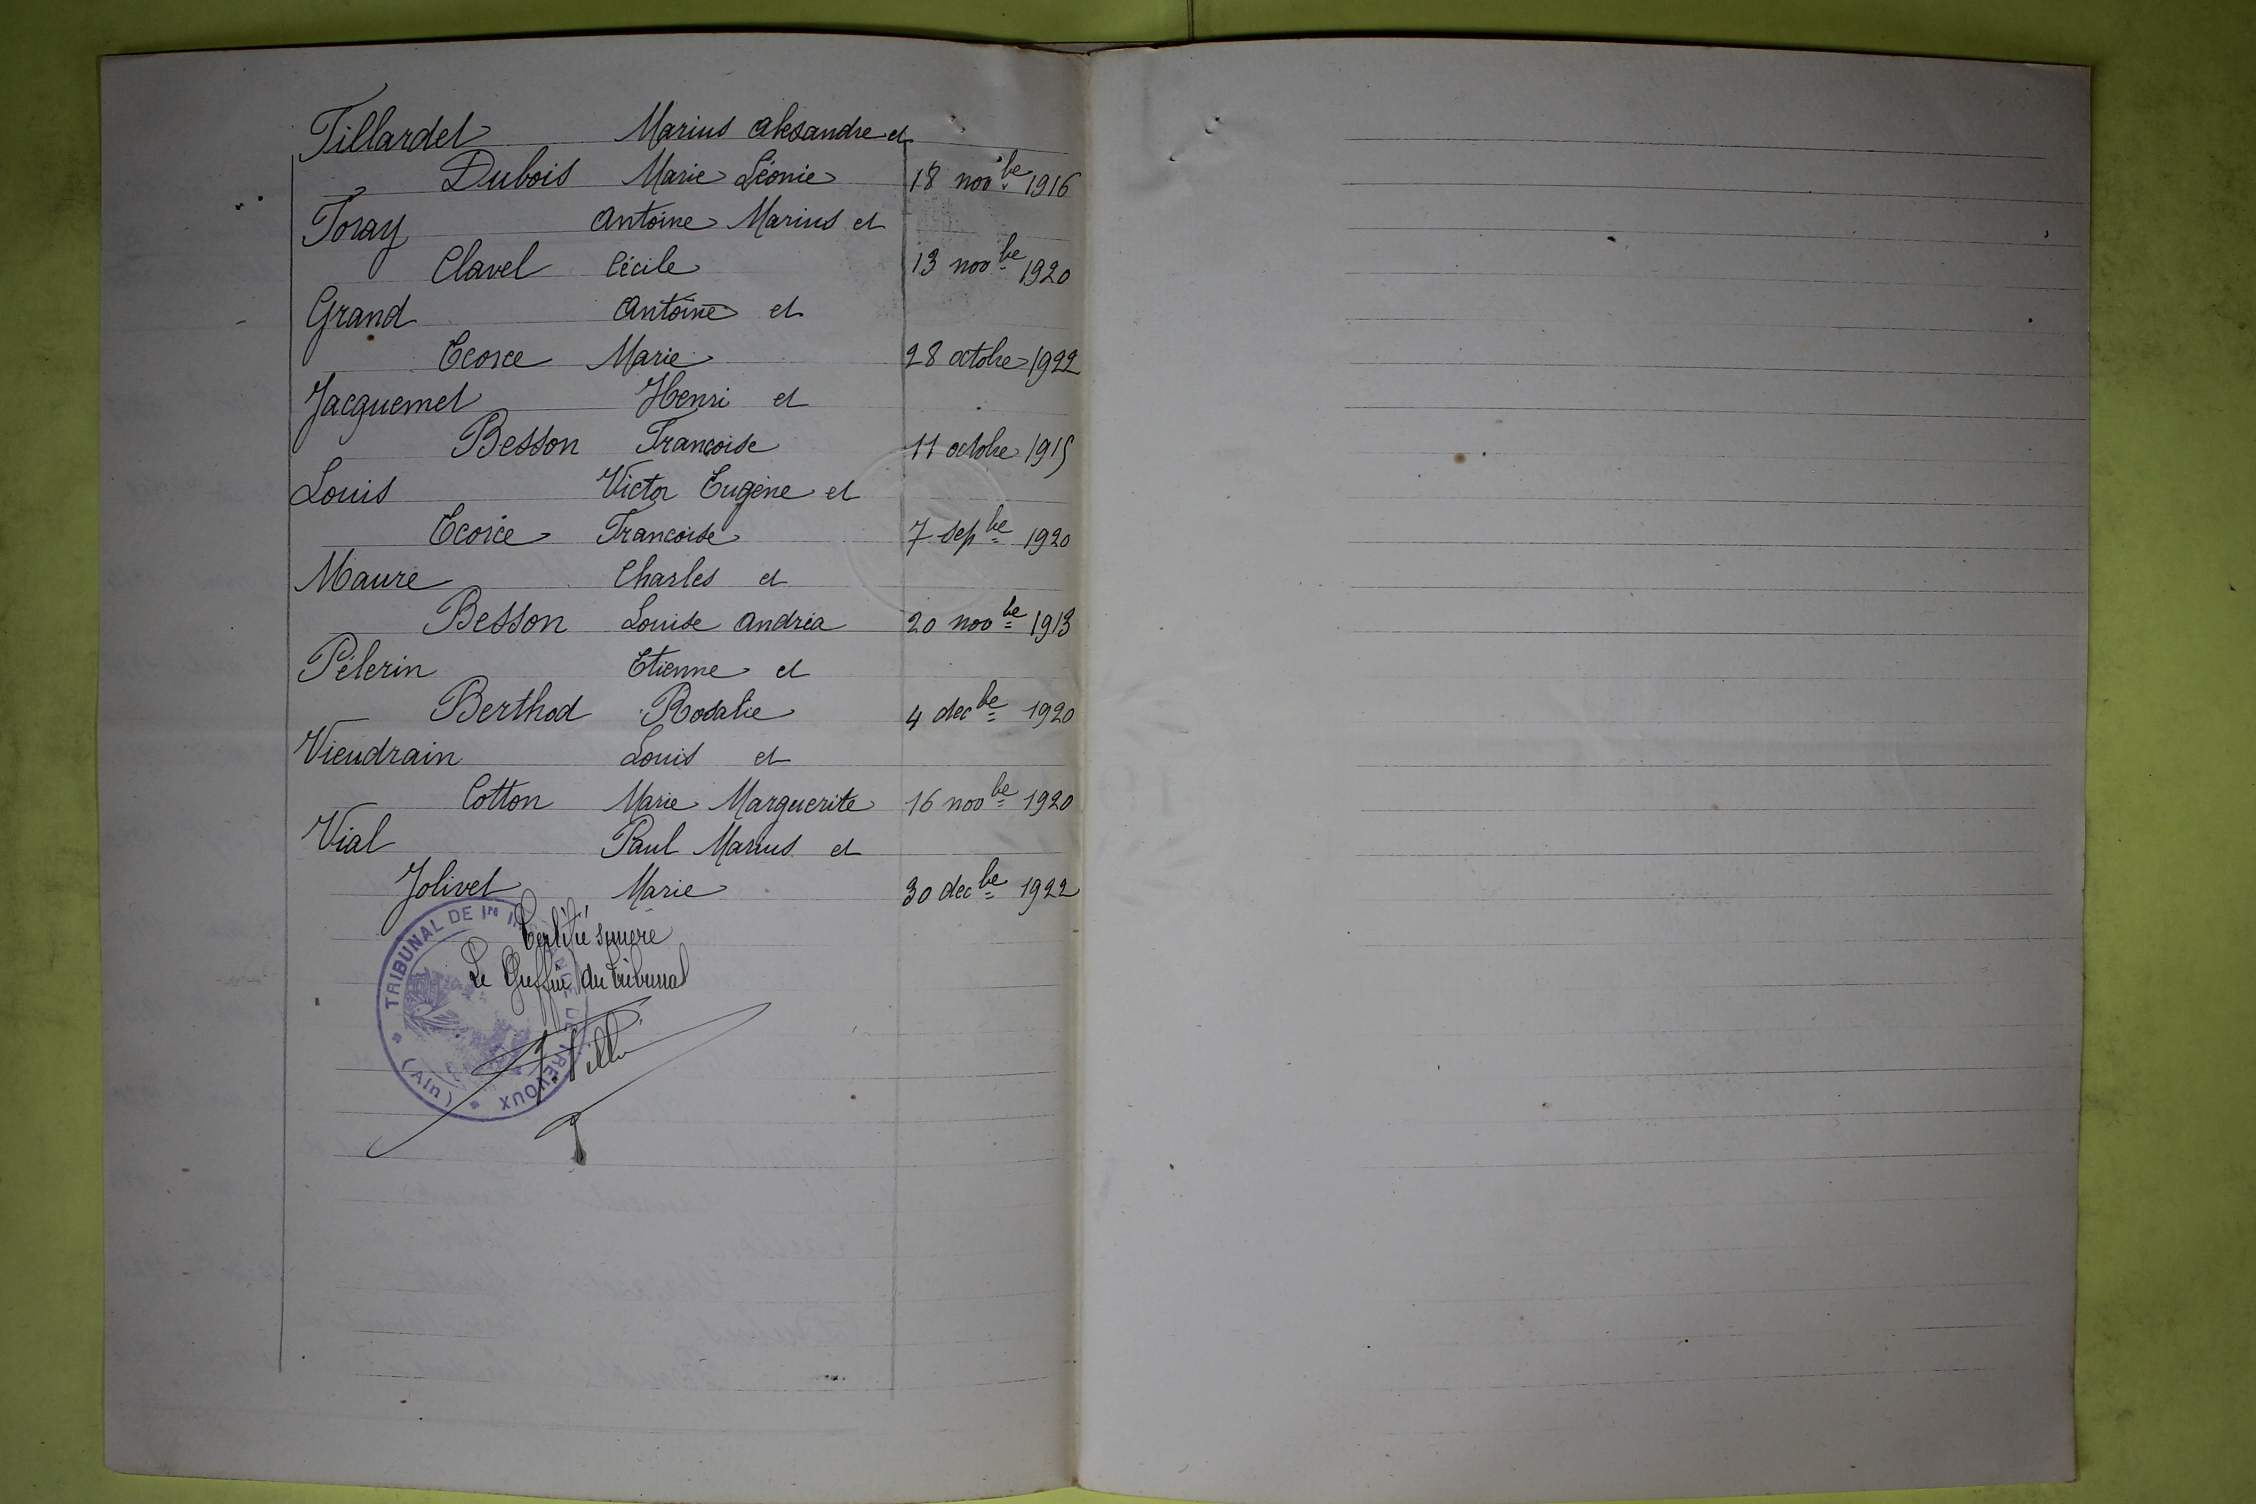 Tillardet Marius Alexandre et
Dubois Marie Léonie 18 novbe 1916
Foray Antoine Marius et
Clavel Cécile 13 novbe 1920
Grand Antoine et
Ecorce Marie 28 octobre 1922
Jacquemet Henri et
Besson Françoise 11 octobre 1915
Louis Victor Eugène et
Ecorce Francoise 7 sepbe 1920
Maure Charles et
Besson Louise Andréa 20 novbe 1913
Pélerin Etienne et
Berthod Rosalie 4 decbe 1920
Vieudrain Louis et
Cotton Marie Marguerite 16 novbe 1920
Vial Paul Marius et
Jolivet Marie 30 decbe 1922
Certifié sincere
Le Greffier du tribunal
TRIBUNAL DE 1re INSTANCE DE TREVOUX
(Ain)